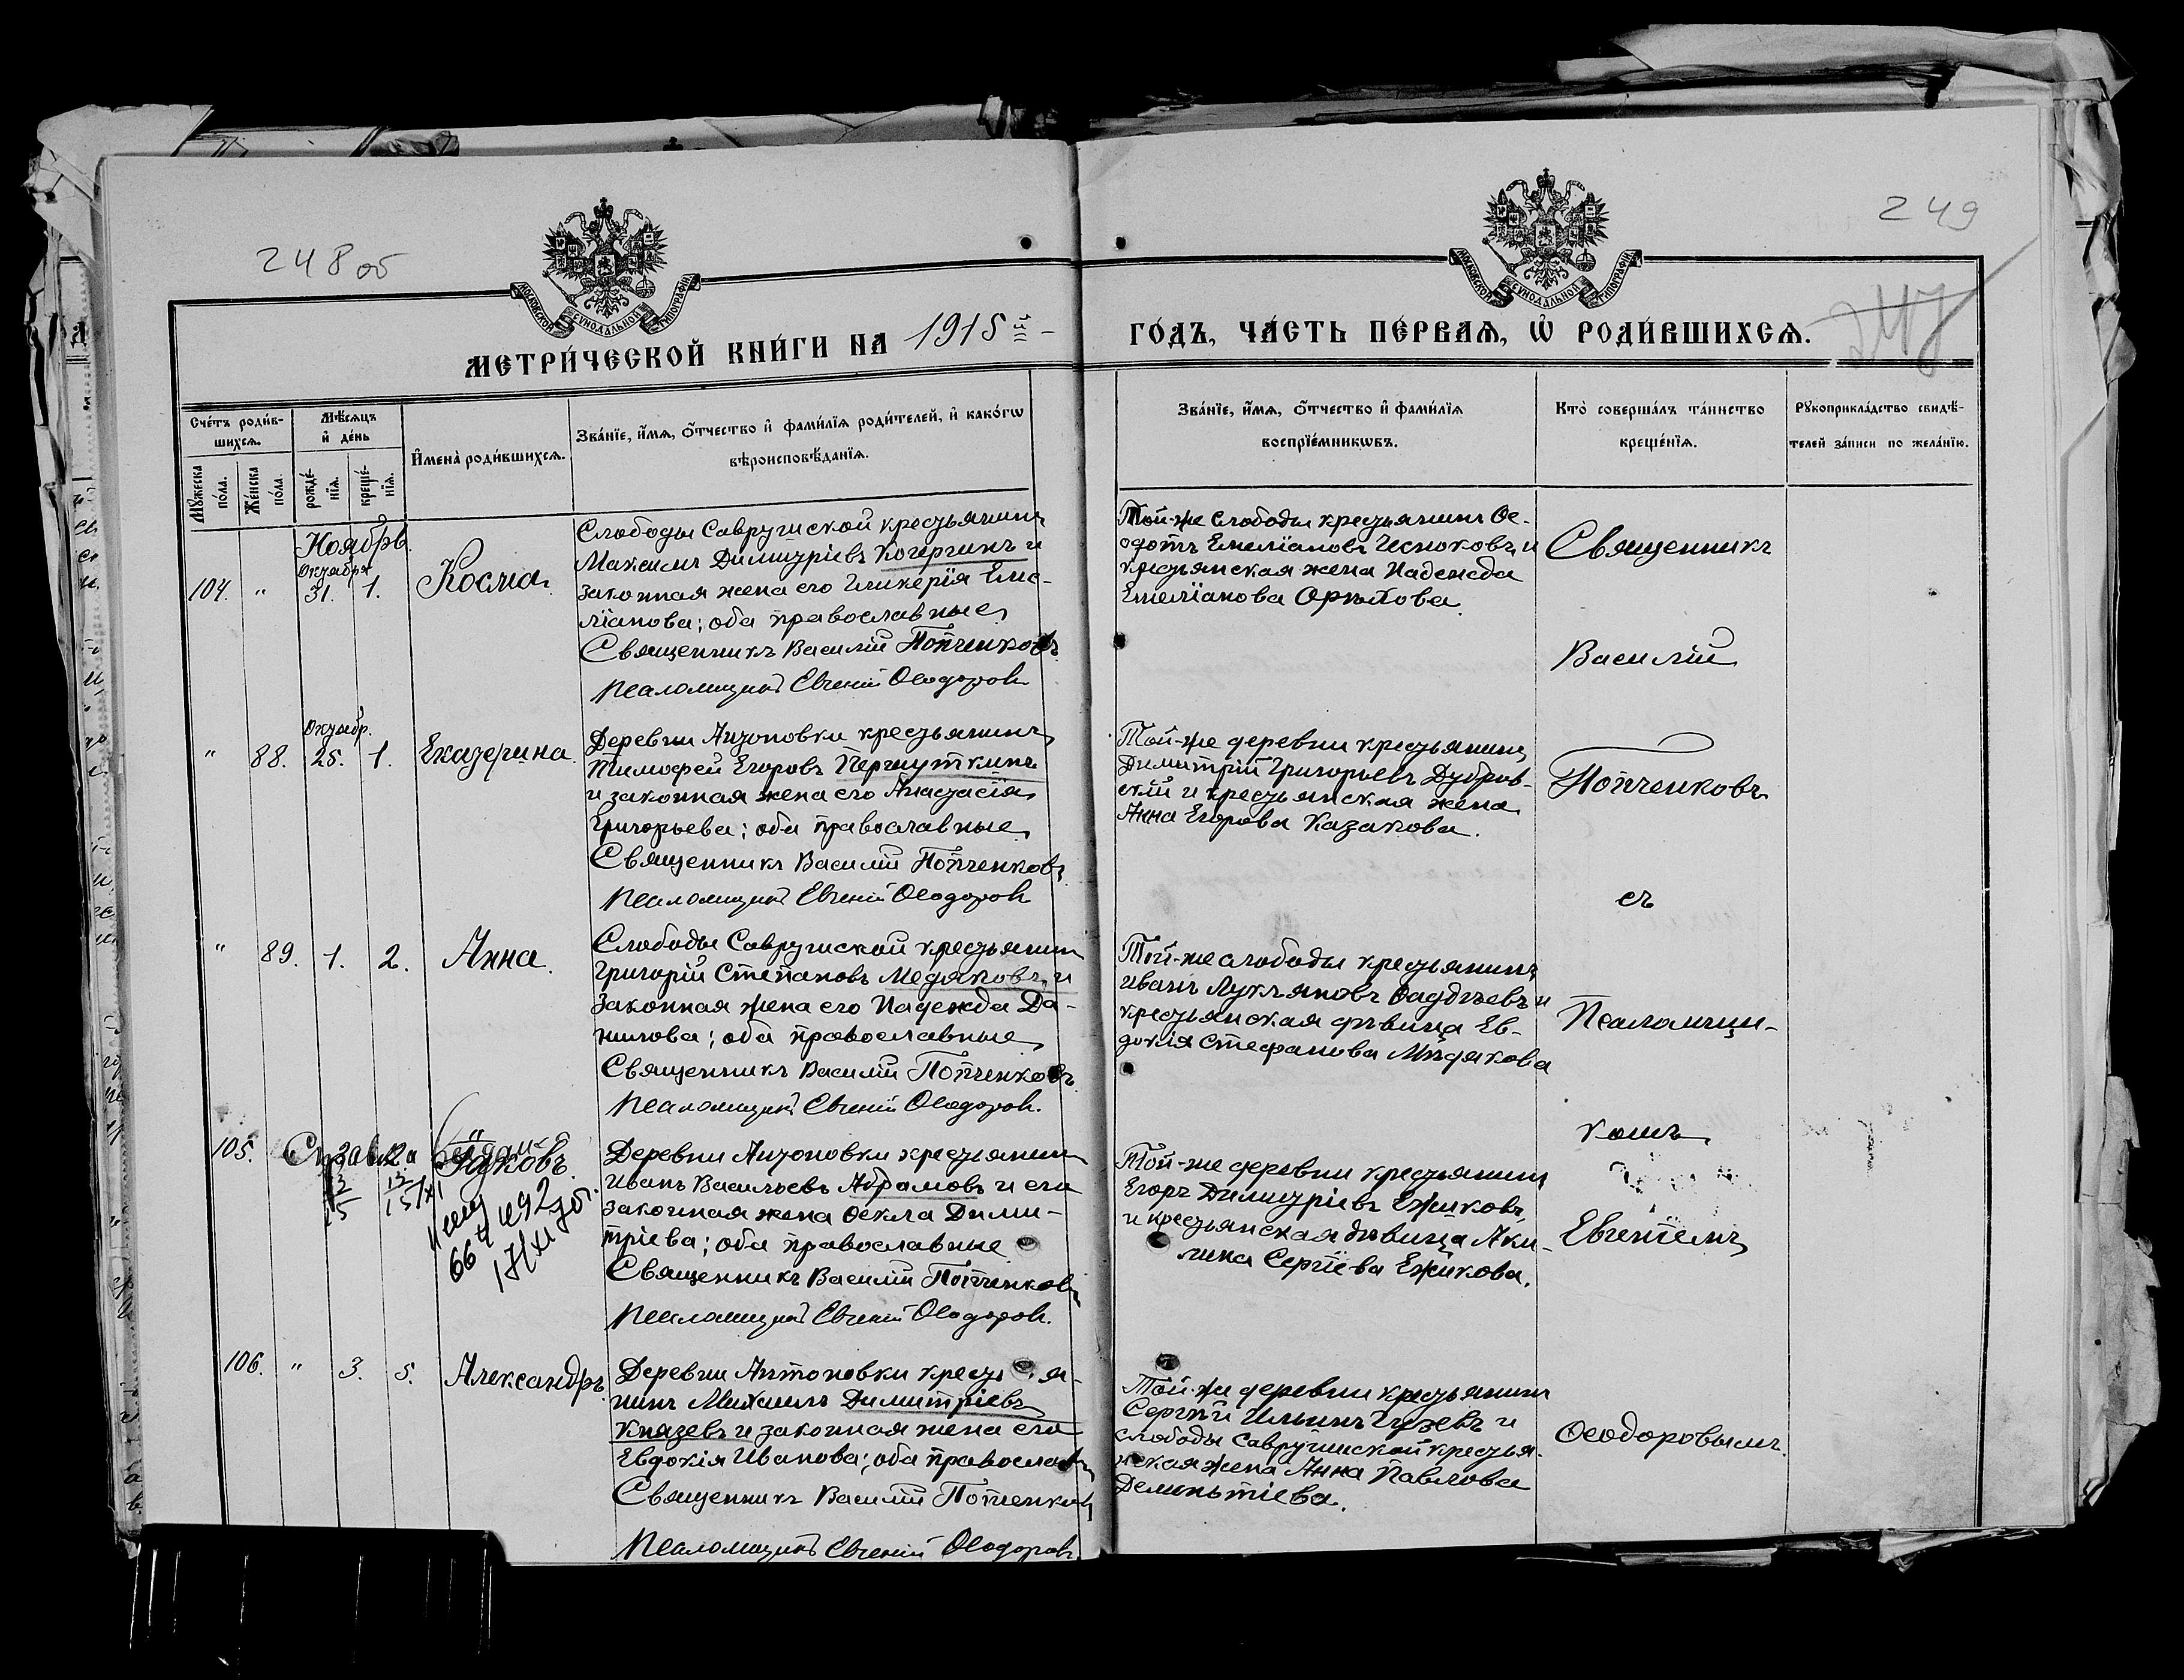 248 об
249
247
МОСКОВСКОЙ СѴНОДАЛЬНОЙ ТИПОГРАФІИ
МОСКОВСКОЙ СѴНОДАЛЬНОЙ ТИПОГРАФІИ
МЕТРИ́ЧЕСКОЙ КНИ́ГИ НА 1915й
ГО́ДЪ, ЧА́СТЬ ПЕ́РВАѦ, Ѽ РОДИ́ВШИХСѦ.
Сче́тъ роди́в-
шихсѧ.
Мѣ́сѧцъ
и҆ де́нь
Мꙋ́жеска
по́ла.
Же́нска
по́ла.
рожде́-
нїѧ.
креще́-
нїѧ.
И҆мена̀ роди́вшихсѧ.
Зва́нїе, и҆́мѧ, ѻ҆́тчество и҆ фами́лїѧ роди́телей, и҆ како́гѡ
вѣроисповѣ́данїѧ.
Зва́нїе, и҆́мѧ, ѻ҆́тчество и҆ фами́лїѧ
воспрїе́мникѡвъ.
Кто̀ соверша́лъ та́инство
креще́нїѧ.
Рꙋкоприкла́дство свидѣ́-
телей за́писи по жела́нїю.
Ноябрь
Октября
104. " 31. 1. Косма.
Слободы Саврушской крестьянинъ
Максимъ Димитріевъ Кочергинъ и
законная жена его Гликерія Еме-
ліанова; оба православные
Священникъ Василій Попченковъ
Псаломщикъ Евгеній Ѳеодоровъ
Той-же слободы крестьянинъ Ѳе-
одотъ Емеліановъ Чесноковъ и
крестьянская жена Надежда
Емеліанова Орлова.
Священникъ
Василій
Октябр.
" 88. 25. 1. Екатерина.
Деревни Антоновки крестьянинъ
Тимофей Егоровъ Пергуткинъ
и законная жена его Анастасія
Григорьева; оба православные
Священникъ Василій Попченковъ
Псаломщикъ Евгеній Ѳеодоровъ
Той-же деревни крестьянинъ
Димитрій Григорьевъ Дубров-
скій и крестьянская жена
Анна Егорова Казакова.
Попченковъ
съ
" 89. 1. 2. Анна.
Слободы Саврушской крестьянинъ
Григорій Степановъ Медяковъ и
законная жена его Надежда Да-
нилова; оба православные
Священникъ Василій Попченковъ
Псаломщикъ Евгеній Ѳеодоровъ.
Той-же слободы крестьянинъ
Иванъ Лукьяновъ Фаддѣевъ и
крестьянская дѣвица Ев-
докія Стефанова Мѣдякова
Псаломщи-
комъ
105. " 2. 2. Іаковъ.
Справка
66
492
17/XI
Деревни Антоновки крестьянинъ
Иванъ Васильевъ Абрамовъ и его
законная жена Ѳекла Дими-
тріева; оба православные
Священникъ Василій Попченковъ
Псаломщикъ Евгеній Ѳеодоровъ.
Той-же деревни крестьянинъ
Егоръ Димитріевъ Ежиковъ
и крестьянская дѣвица Аки-
лина Сергіева Ежикова.
Евгеніемъ
106. " 3. 5. Александръ.
Деревни Антоновки кресть я-
нинъ Михаилъ Димитріевъ
Князевъ и законная жена его
Евдокія Иванова; оба православн
Священникъ Василій Попченковъ
Псаломщикъ Евгеній Ѳеодоровъ
Той-же деревни крестьянинъ
Сергѣй Ильинъ и
слободы Саврушской крестья-
нская жена Анна Павлова
Дементіева.
Ѳеодоровымъ.